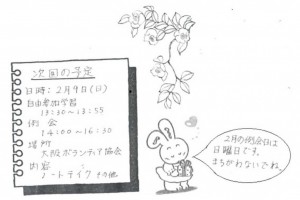 次回の予定
日時：2月9日(日)
自由参加学習
13:30～13:55
例会
14:00～16:30
場所
大阪ボランティア協会
内容
ノートテイク その他
2月の例会日は
日曜日です。
まちがわないでね。